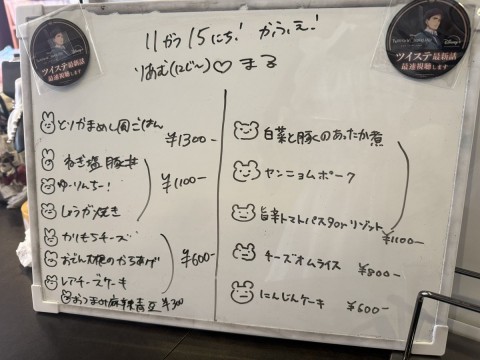 11がつ15にち! かふぇ!
りあむ(12じ〜)♡まる
とりかまめし風ごはん ¥1300-
ねぎ塩豚丼
ゆーりんちー!
しょうが焼き
¥1100-
かりもちチーズ
おでん大根のからあげ
レアチーズケーキ
¥600-
おつまみ麻辣青豆 ¥300
白菜と豚くのあったか煮
ヤンニョムポーク
旨辛トマトパスタorリゾット
¥1100-
チーズオムライス ¥800-
にんじんケーキ ¥600-
ツイステ最新話
最速視聴します
Disney+
ツイステ最新話
最速視聴します
Disney+